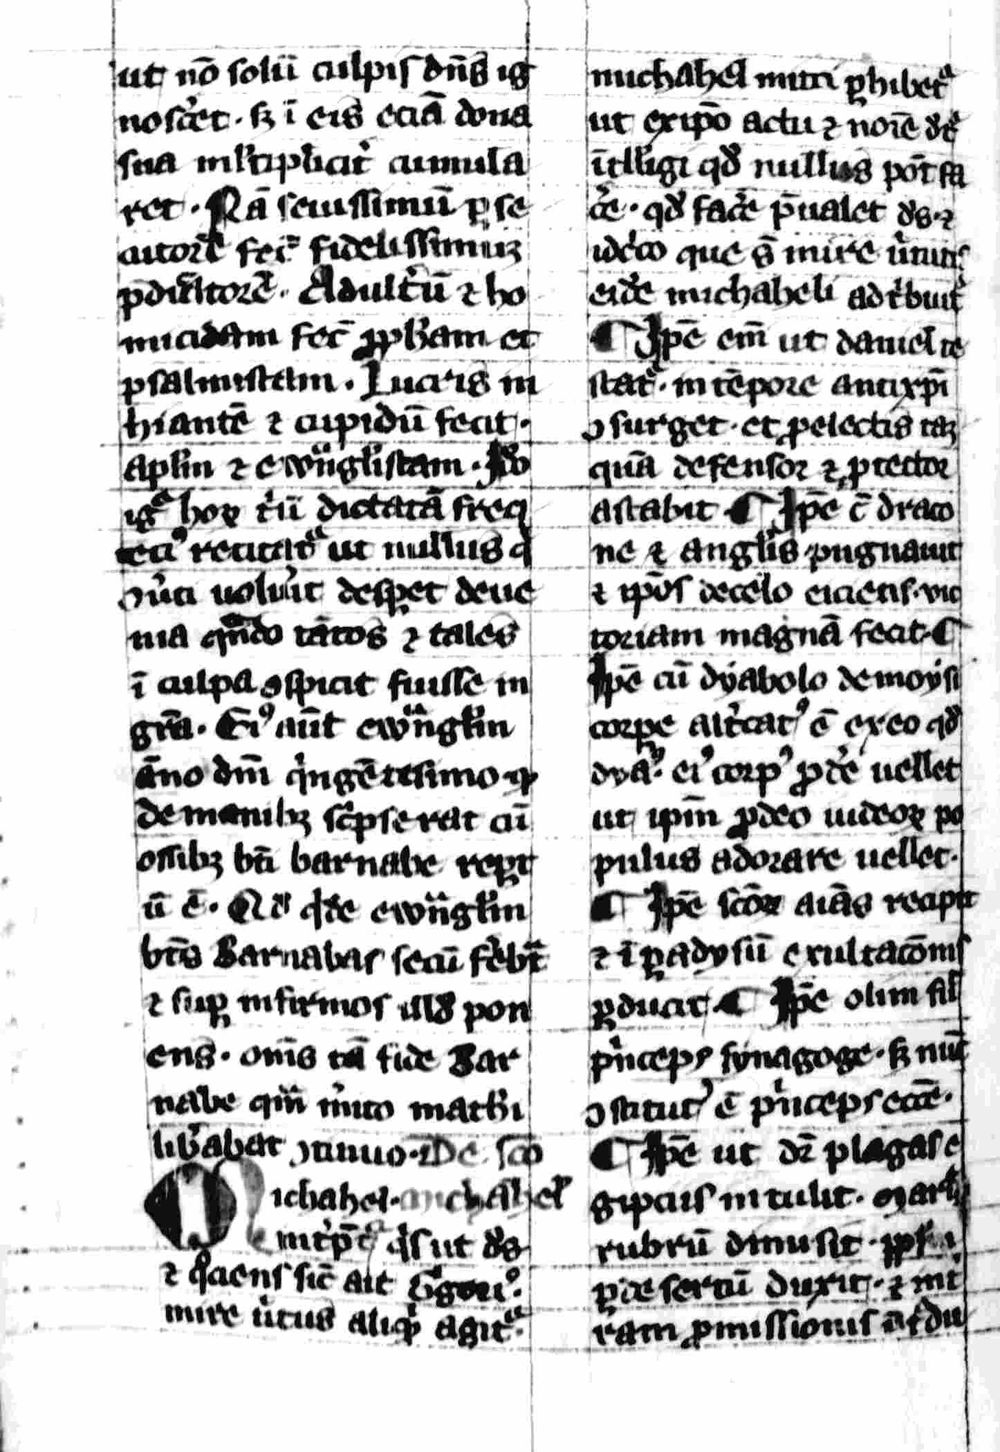 ut nō solū culpis dn̄s ig
nosc̄et · sꝫ ī eis eciā dona
sua ml̓tiplicit̓ cumula
ret · Nā seuissimū ꝑse
cutorē fec̄ fidelissimuꝫ
p̄dicatorē · Adult̓ū ⁊ ho
micidam fec̄ ꝓph̄am et
psalmistam · Lucris in
hiantē ⁊ cupidū fecit ·
apl̄m ⁊ ewn̄gl̄istam · Jō
igᷓ hoꝝ t̓ū dictatā freq̄
recitatᷓ ut nullus q̓
ꝯu̓ti uolu̓it desꝑet deue
nia qn̄do tātos ⁊ tales
ī culpa ꝯspicit fuisse in
gr̄a · Eiꝰ aūt ewn̄gl̄m
āno dn̄i q̓ngētesimo · qᷓ
de manibꝫ sc̓pserat cū
ossibꝫ bt̄i barnabe reꝑt
ū ē · Qd̓ q̓de ewn̄gl̄m
bt̄s Barnabas secū ferebᷓt
⁊ suꝑ infirmos illd̓ pon
ens · om̄s tā fide Bar
nabe qᷓm m̓ito mathi̓
lib̓abat ꝯtinuo · De sc̄o
Michahel · michahel
int̓p̄tᷓ q̓s ut d̓s
⁊ q̓ciens sic̄ ait Gᷓgoriꝰ
mire u̓tus aliqᷓ agitᷓ ·
michahel mitti ꝑhibetᷓ
ut exip̄o actu ⁊ noīe d̓t̓
ītelligi qd̓ nullus pōt fa
c̓e · qd̓ fac̓e p̄ualet d̓s · ⁊
id̓co que s̄ mire u̓tutis
eid̓e michaheli adt̓buit̓
¶ Jpē em̄ ut daniel te
statᷓ · in tēpore antixp̄i
ꝯsurget · et ꝓelectis taꝫ
quā defensor ⁊ ꝓtector
astabit ¶ Jpē c̄ draco
ne ⁊ angl̄is pugnauit
⁊ ip̄os decelo eiciens · vic
toriam magnā fecit · ¶
Jpē cū dyabolo de moysi
corpe alt̓catꝰ ē exeo qd̓
dyaᷓ · eiꝰ corpꝰ ꝓd̓e uellet
ut ip̄m ꝓdeo iudeoꝝ po
pulus adorare uellet ·
¶ Jpē sc̄oꝝ aīas recipit
⁊ ī ꝑadysū exultacōnis
ꝑducit · ¶ Jpē olim fu̓
p̓nceps synagoge · sꝫ nūc
ꝯstitutꝰ ē p̓nceps ecc̄e ·
¶ Jpē ut dr̄ plagas e
gipciis intulit · mare
rubrū diuisit · ppl̄m
ꝑdesertū duxit · ⁊ int̓
ram ꝓmissionis īt̓du